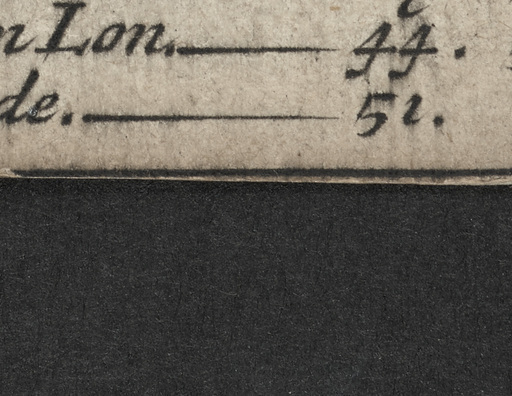 n Lon. 44.
de. 51.